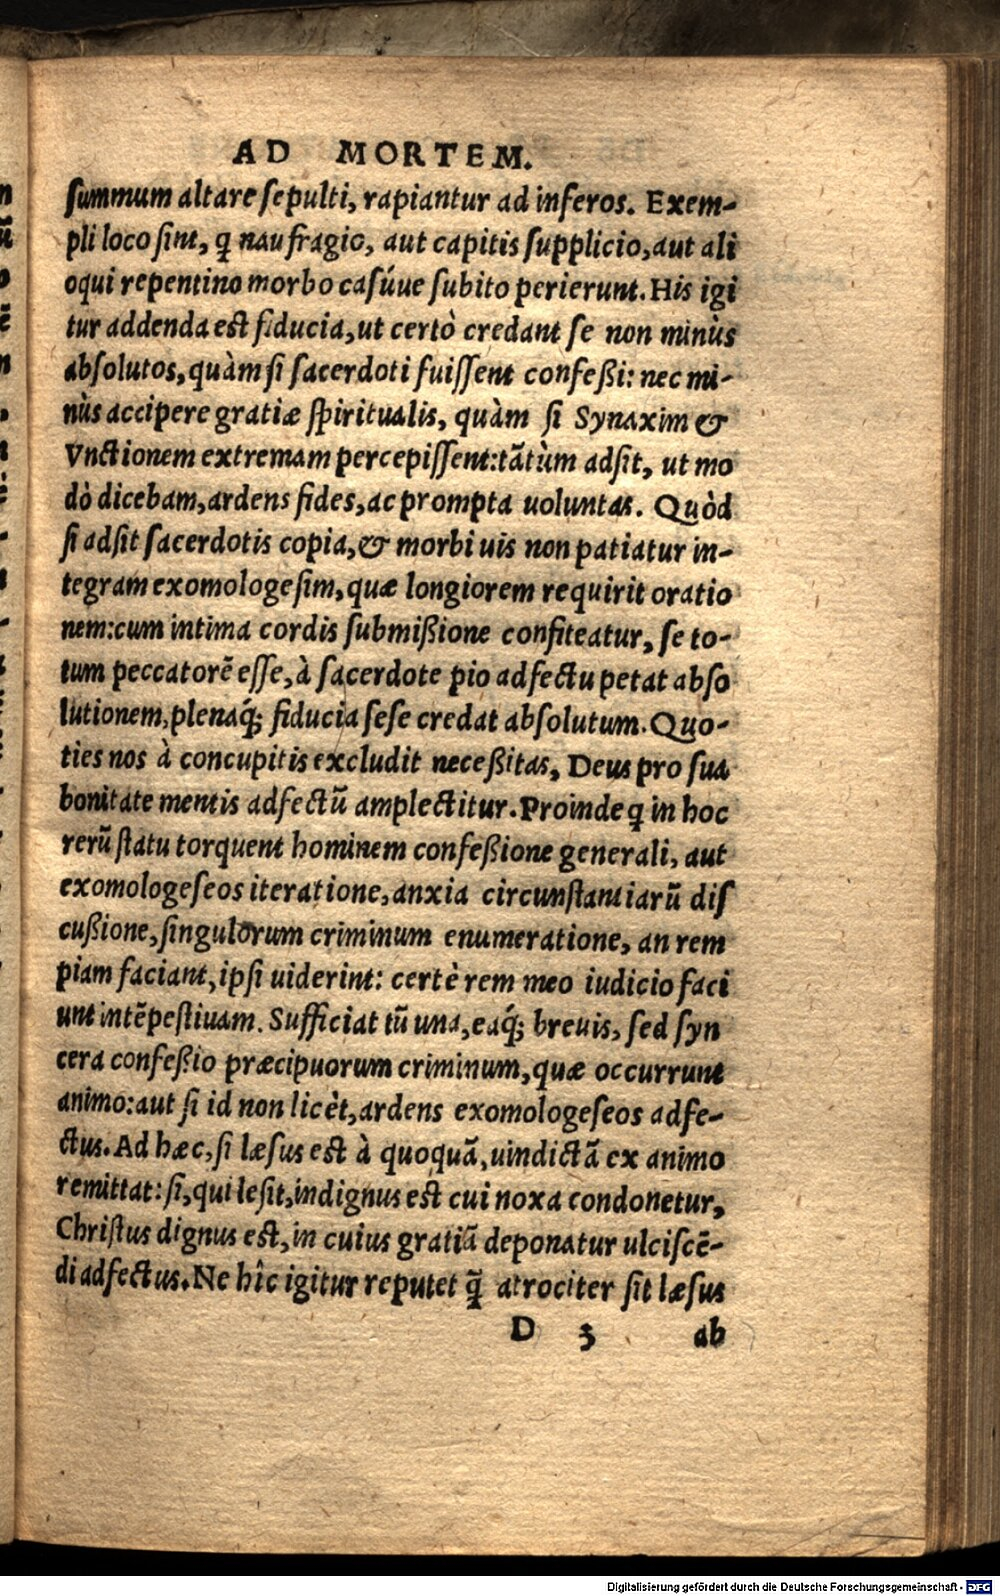 AD MORTEM.
ſummum altare ſepulti, rapiantur ad inferos. Exem-
pli loco ſint, q̄ naufragio, aut capitis ſupplicio, aut ali
oqui repentino morbo caſúue ſubito perierunt. His igi
tur addenda est fiducia, ut certò credant ſe non minùs
abſolutos, quàm ſi ſacerdoti fuiſſent confeßi: nec mi-
nùs accipere gratiæ ſpiritualis, quàm ſi Synaxim &
Vnctionem extremam percepiſſent: tãtùm adſit, ut mo
dò dicebam, ardens fides, ac prompta uoluntas. Quòd
ſi adſit ſacerdotis copia, & morbi uis non patiatur in-
tegram exomologeſim, quæ longiorem requirit oratio
nem: cum intima cordis ſubmißione confiteatur, ſe to-
tum peccatorẽ eſſe, à ſacerdote pio adfectu petat abſo
lutionem, plenaq́; fiducia ſeſe credat abſolutum. Quo-
ties nos à concupitis excludit neceßitas, Deus pro ſua
bonitate mentis adfectũ amplectitur. Proinde q̄ in hoc
rerũ ſtatu torquent hominem confeßione generali, aut
exomologeſeos iteratione, anxia circunſtantiarũ diſ
cußione, ſingulorum criminum enumeratione, an rem
piam faciant, ipſi uiderint: certè rem meo iudicio faci
unt intẽpeſtiuam. Sufficiat tũ una, eaq́; breuis, ſed ſyn
cera confeßio præcipuorum criminum, quæ occurrunt
animo: aut ſi id non licèt, ardens exomologeſeos adfe-
ctus. Ad hæc, ſi læſus est à quoquã, uindictã ex animo
remittat: ſi, qui leſit, indignus est cui noxa condonetur,
Chriſtus dignus est, in cuius gratiã deponatur ulciſcẽ-
di adfectus. Ne hîc igitur reputet q̃ atrociter ſit læſus
D 3 ab
Digitalisierung gefördert durch die Deutsche Forschungsgemeinschaft - DFG